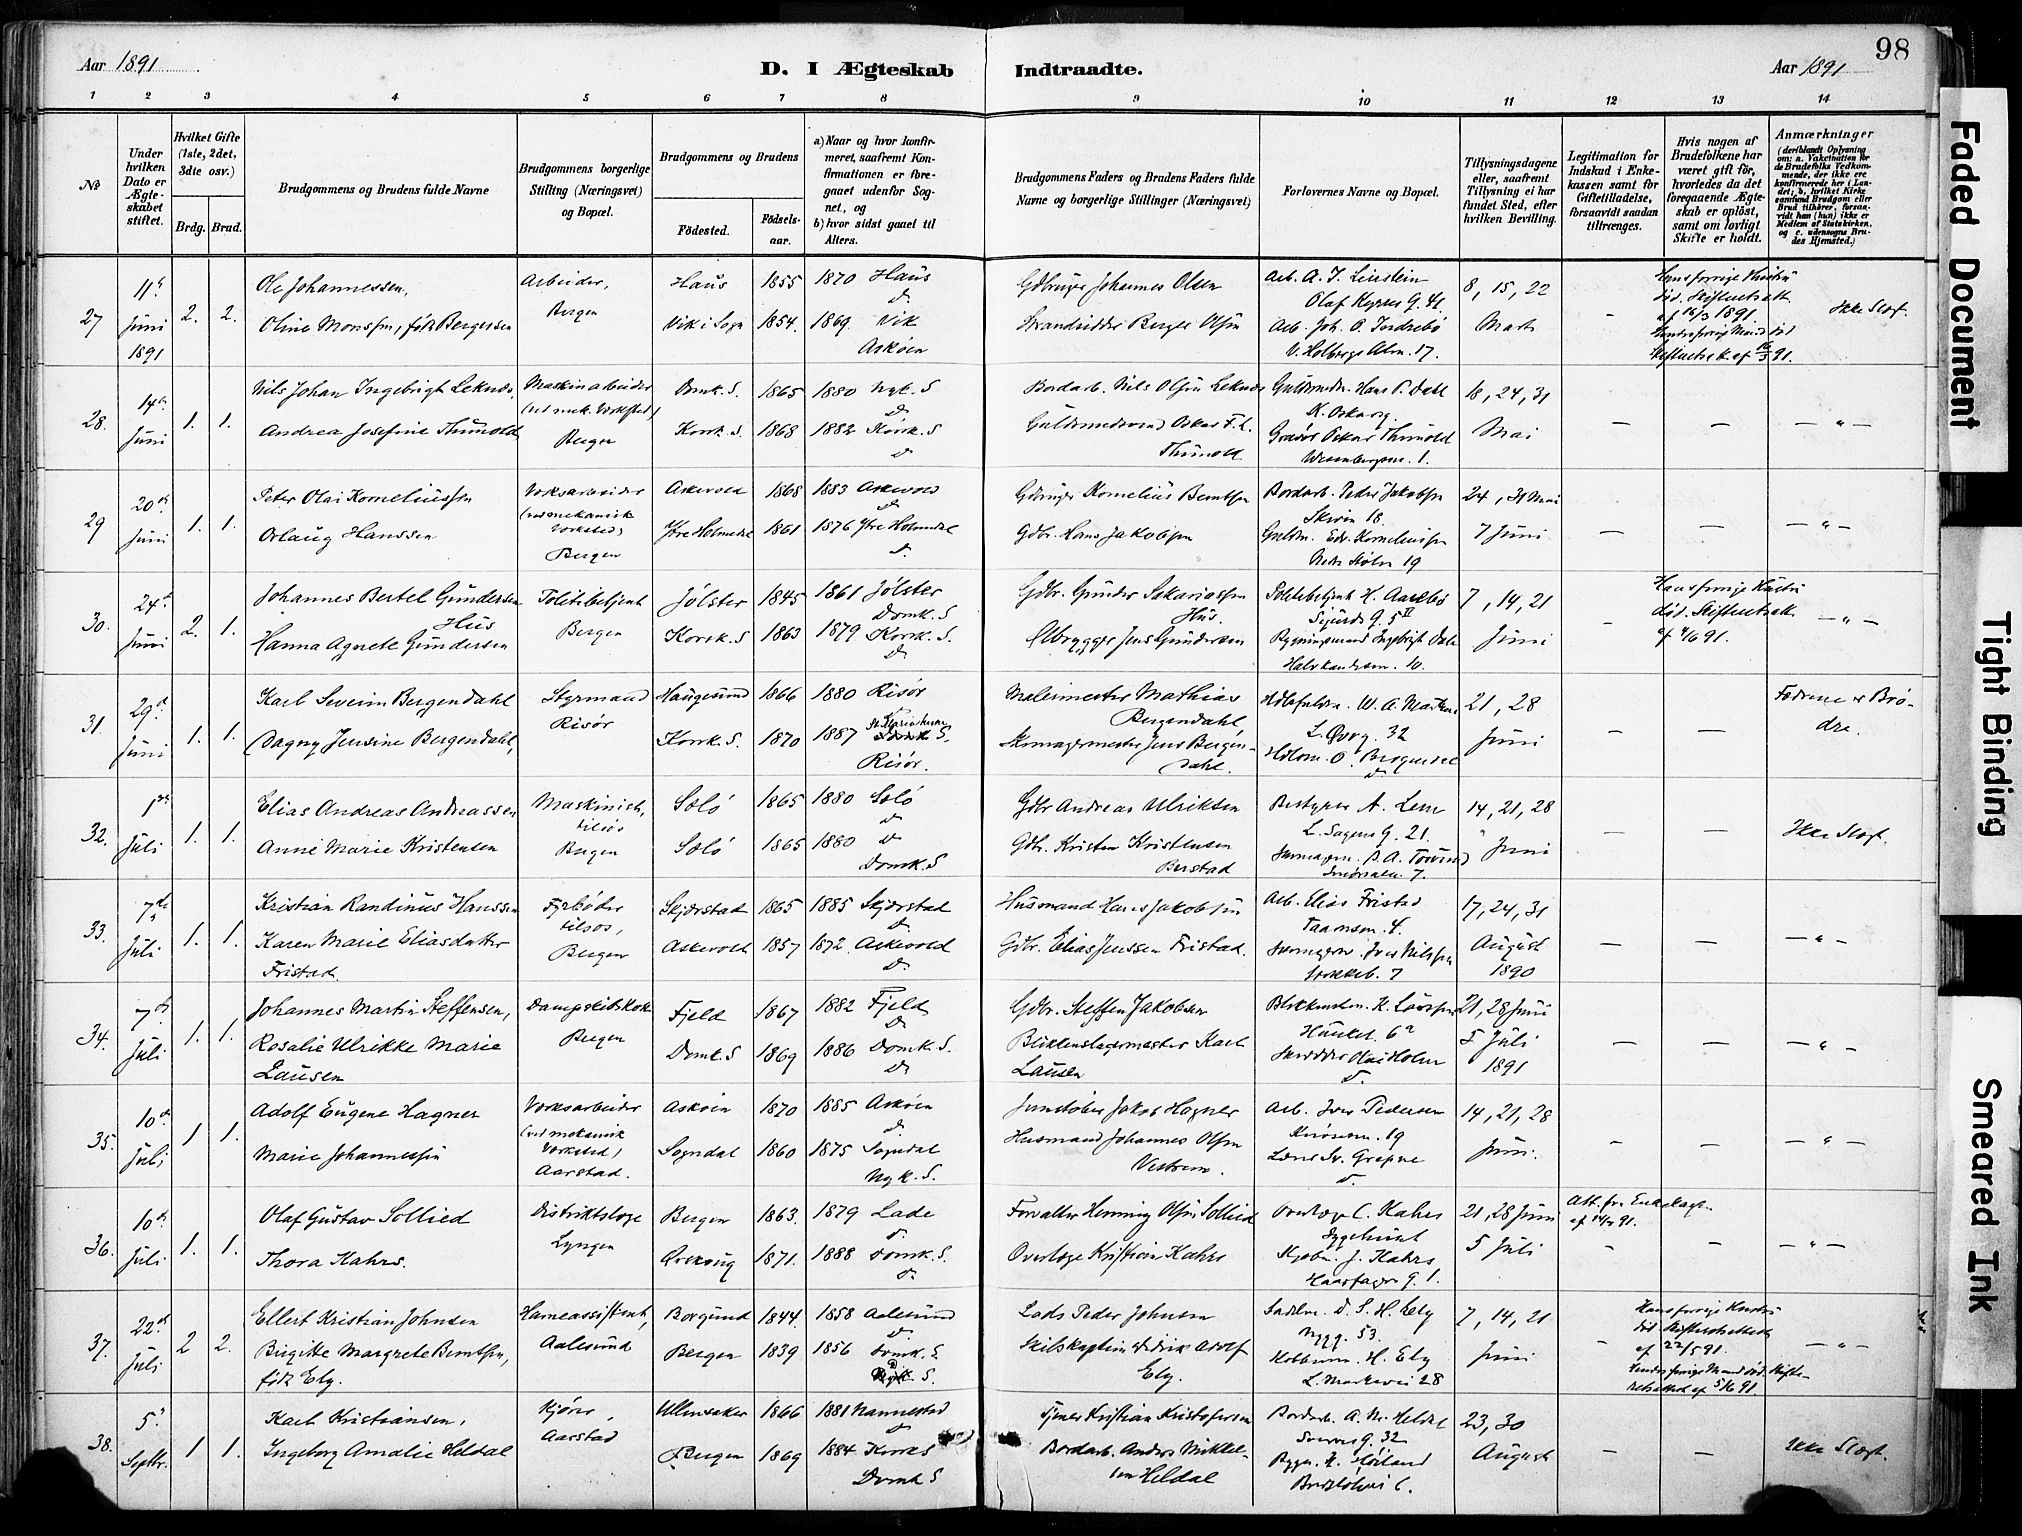 98
Aar 1891
D. I Ægteskab Indtraadte.
Aar 1891
1 2 3 4 5 6 7 8 9 10 11 12 13 14
No
Under hvilken Dato er Ægteskabet stiftet.
Hvilket Gifte (1ste, 2det, 3dte osv.)
Brdg. Brud.
Brudgommens og Brudens fulde Navne
Brudgommens borgerlige Stilling (Næringsvei) og Bopæl.
Brudgommens og Brudens
Fødested.
Fødselsaar.
a) Naar og hvor konfirmeret, saafremt Konfirmationen er foregaaet udenfor Sognet, og
b) hvor sidst gaaet til Alters.
Brudgommens Faders og Brudens Faders fulde Navne og borgerlige Stillinger (Næringsvei)
Forlovernes Navne og Bopæl.
Tillysningsdagene eller, saafremt Tillysning ei har fundet Sted, efter hvilken Bevilling.
Legitimation for Indskud i Enkekassen samt for Giftetilladelse, forsaavidt saadan tiltrænges.
Hvis nogen af Brudefolkene har været gift før, hvorledes da det foregaaende Ægteskab er opløst, samt om lovligt Skifte er holdt.
Anmærkninger
(deriblandt Oplysning om: a. Vakcination for de Brudefolks Vedkommende, der ikke ere konfirmerede her i Landet; b. hvilket Kirkesamfund Brudgom eller Brud tilhører, forsaavidt han (hun) ikke er Medlem af Statskirken, og c. udensogns Brudes Hjemsted.)
27 11te Juni 1891 2. 2.
Ole Johannessen, Arbeider, Bergen Haus 1855 1870 Haus
Oline Monssen, født Bergersen Vik i Sogn 1854. 1869. Vik Askøen
Gdbruger Johannes Olsen
Strandsidder Berger Olsen
Olaf Kyrres G. 41.
V. Holbergs Alm. 17.
8, 15, 22 Marts
Hans forrige Hustru død. Skifteattest af 16/3 1891.
Ikke Slægt.
28. 14de Juni 1. 1.
Nils Johan Ingebrigt Leknes, Maskinarbeider (ved mek. Værksted) Bergen Domk. S. 1865 1880 Nyk. S
Andrea Josefine Thunold Korsk. S. 1868 1882 Korsk. S
Bordarb. Nils Olsen Leknes
Guldsmedsvend Oskar F. L. Thunold
Guldsmdm. Hans P. Dahl
Gravør Oskar Thunold
18, 24, 31 Mai
29 20de Juni 1. 1.
Peter Olai Korneliussen Værksarbeider (ved mekanisk Værksted) Bergen Askevold 1868 1883 Askevold
Orlaug Hanssen Ytre Holmedal 1861 1876 Ytre Holmedal
Gdbruger Kornelius Berntsen
Gdbr. Hans Jakobsen
Bordarb. Peder Jakobsen
Skiven 18
Guldsm. Edv. Korneliussen
Nedre Stølen 19
24, 31 Mai
7 Juni
30. 24de Juni 2. 1.
Johannes Bertel Gundersen Hus Politibetjent Bergen Jølster 1845 1861 Jølster Domk. S
Hanna Agnete Gundersen Korsk. S 1863 1879 Korsk. S.
Gdbr. Gunder Sakariassen Hus.
Ølbrygger Jens Gundersen
Politibetjent H. Aarebø
Sigurds G. 5
7, 14, 21 Juni
Hans forrige Hustru død. Skifteattest af 4/6 91.
31. 29de Juni 1. 1.
Karl Severin Bergendahl Styrmand Risør Haugesund 1866 1880 Risør
Dagny Jensine Bergendahl, Korsk. S. 1870 1887 Risør.
Malermester Mathias Bergendahl
Skomagermester Jens Bergendahl.
L. Øvrg. 32
21, 28 Juni
Fædrene er Brødre.
32. 1ste Juli 1. 1.
Elias Andreas Andreassen Maskinist, tilsøs Bergen Solø 1865 1880 Solø
Anne Marie Kristensen Solø 1865 1880 Domk. S
Gdbr Andreas Ulriksen
Gdbr. Kristen Kristensen Berstad
Bestyrer A. Lem
L. Sagens G. 21.
14, 21, 28 Juni
Ikke Slægt.
33. 7de Juli 1. 1.
Kristian Randinus Hanssen Fyrbøder tilsøs, Bergen Skjerstad 1865 1885 Skjerstad
Karen Marie Eliasdatter Fristad. Askevold 1857 1872. Askevold
Husmand Hans Jakobsen
Gdbr. Elias Jenssen Fristad.
Arb. Elias Fristad
17, 24, 31 August 1890
34. 7de Juli 1. 1.
Johannes Martin Steffensen, Dampskibskok Bergen Fjeld 1867 1882 Fjeld
Rosalie Ulrikke Marie Lausen Domk. S 1869 1886 Domk. S.
Gdbr. Steffen Jakobsen
Blikkenslagermester Karl Lausen
21, 28 Juni
5 Juli 1891
35. 10de Juli 1 1.
Adolf Eugene Hagner Værksarbeider (ved mekanisk Værksted) Aarstad. Askøen 1870 1885 Askøen
Marie Johannessen Sogndal 1860 1875 Sogndal Nyk. S.
Husmand Johannes Olsen
Arb. Iver Pedersen
14, 21, 28 Juni.
36. 10de Juli 1. 1.
Olaf Gustav Sollied Distriktslæge Lyngen Bergen 1863. 1879 Lade
Thora Kahrs. 1871. 1888 Domk. S.
Forvalter Henning Olsen Sollied
Overlæge Kristian Kahrs
Overlæge C. Kahrs
Sygehuset
Kjøbm. J. Kahrs
Haarfagers G. 1.
21, 28 Juni
5 Juli
37. 22de Juli 2 2.
Ellert Kristian Johnsen Havneassistent, Aalesund Borgund 1844. 1858 Aalesund
Birgitte Margrete Berntsen, født Ely. Bergen 1839 1856 Domk. S.
Lods Peder Johnsen
Skibskaptein Didrik Adolf Ely.
Nygg. 53.
L. Markevei 28
7, 14, 21 Juni
Hans forrige Hustru død. Skifteattest af 22/5 91.
38. 5te Septbr. 1 1.
Karl Kristiansen, Kjører, Aarstad Ullensaker 1866 1881 Nannestad
Ingeborg Amalie Heldal Bergen 1869 1884 Domk S
Kristian Kristofersen
Bordarb. Anders Mikkelsen Heldal
Bordarb. A. M. Heldal
Sverres G. 32
23, 30 August
Ikke Slægt.
Faded Document
Tight Binding
Smeared Ink